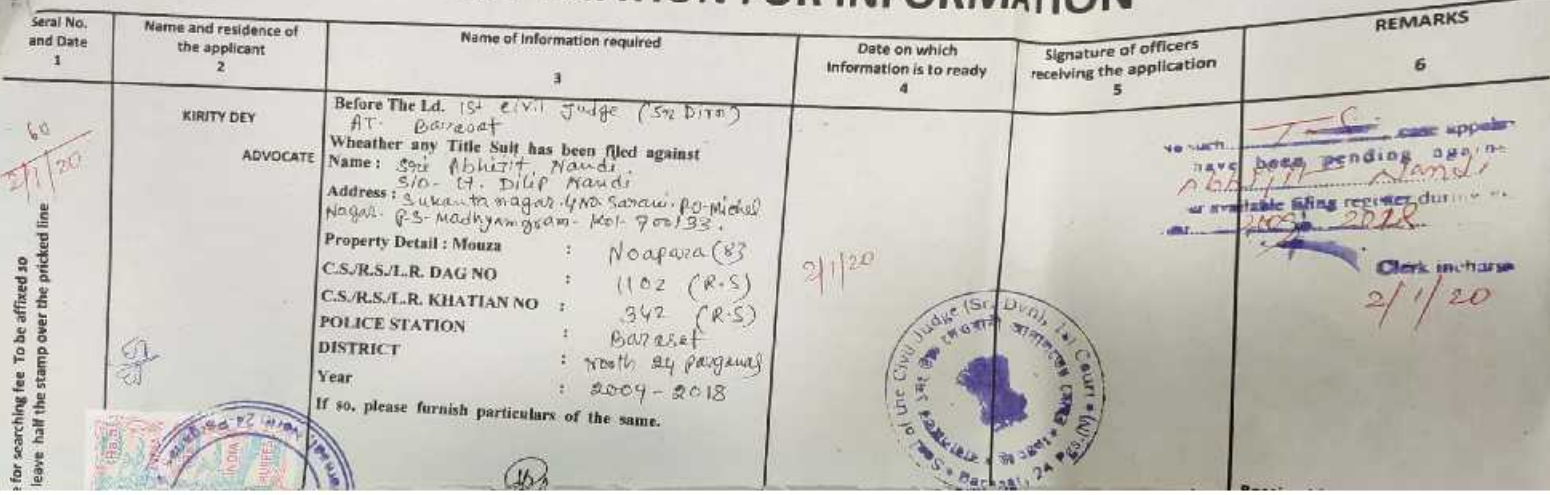 FOR INFORMATION
Seral No.
and Date
1
Name and residence of
the applicant
2
Name of Information required
3
Date on which
Information is to ready
4
Signature of officers
receiving the application
5
REMARKS
6
60
2/1/20
KIRITY DEY
ADVOCATE
Before The Ld. 1st Civil Judge (Srz Divn)
AT. Barasat
Wheather any Title Suit has been filed against
Name : Sri Abhizit Nandi
S/o- Lt. Dilip Nandi
Address : Sukanta nagar. 4 No. Sarani. P.O- Michel
Nagar. P.S- Madhyamgram- Kol- 700133.
Property Detail : Mouza : Noapara (83
C.S./R.S./L.R. DAG NO : 1102 (R.S)
C.S./R.S./L.R. KHATIAN NO : 342 (R.S)
POLICE STATION : Barasat
DISTRICT : North 24 Parganas
Year : 2004 - 2018
If so, please furnish particulars of the same.
2/1/20
No such T-S case appears
have been pending against
Abhijit Nandi
available filing register during
2018
Clerk incharge
2/1/20
Seal of the Civil Judge (Sr. Dvn), 1st Court
24 Pgs.
for searching fee To be affixed so
leave half the stamp over the pricked line
INDIA
RUPEES